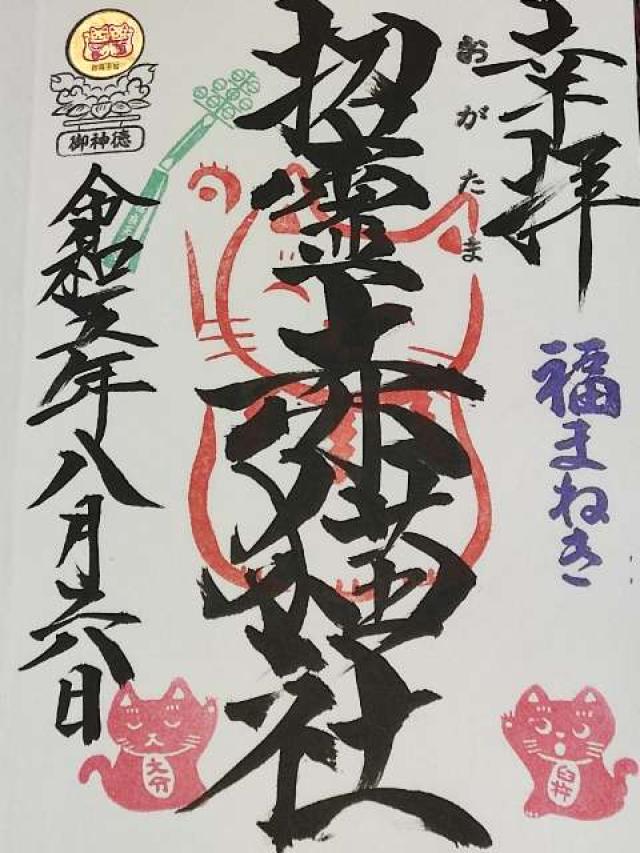 幸拝
福まねき
おがたま
招霊赤猫社
御神徳
令和五年八月廿六日
大分
臼杵